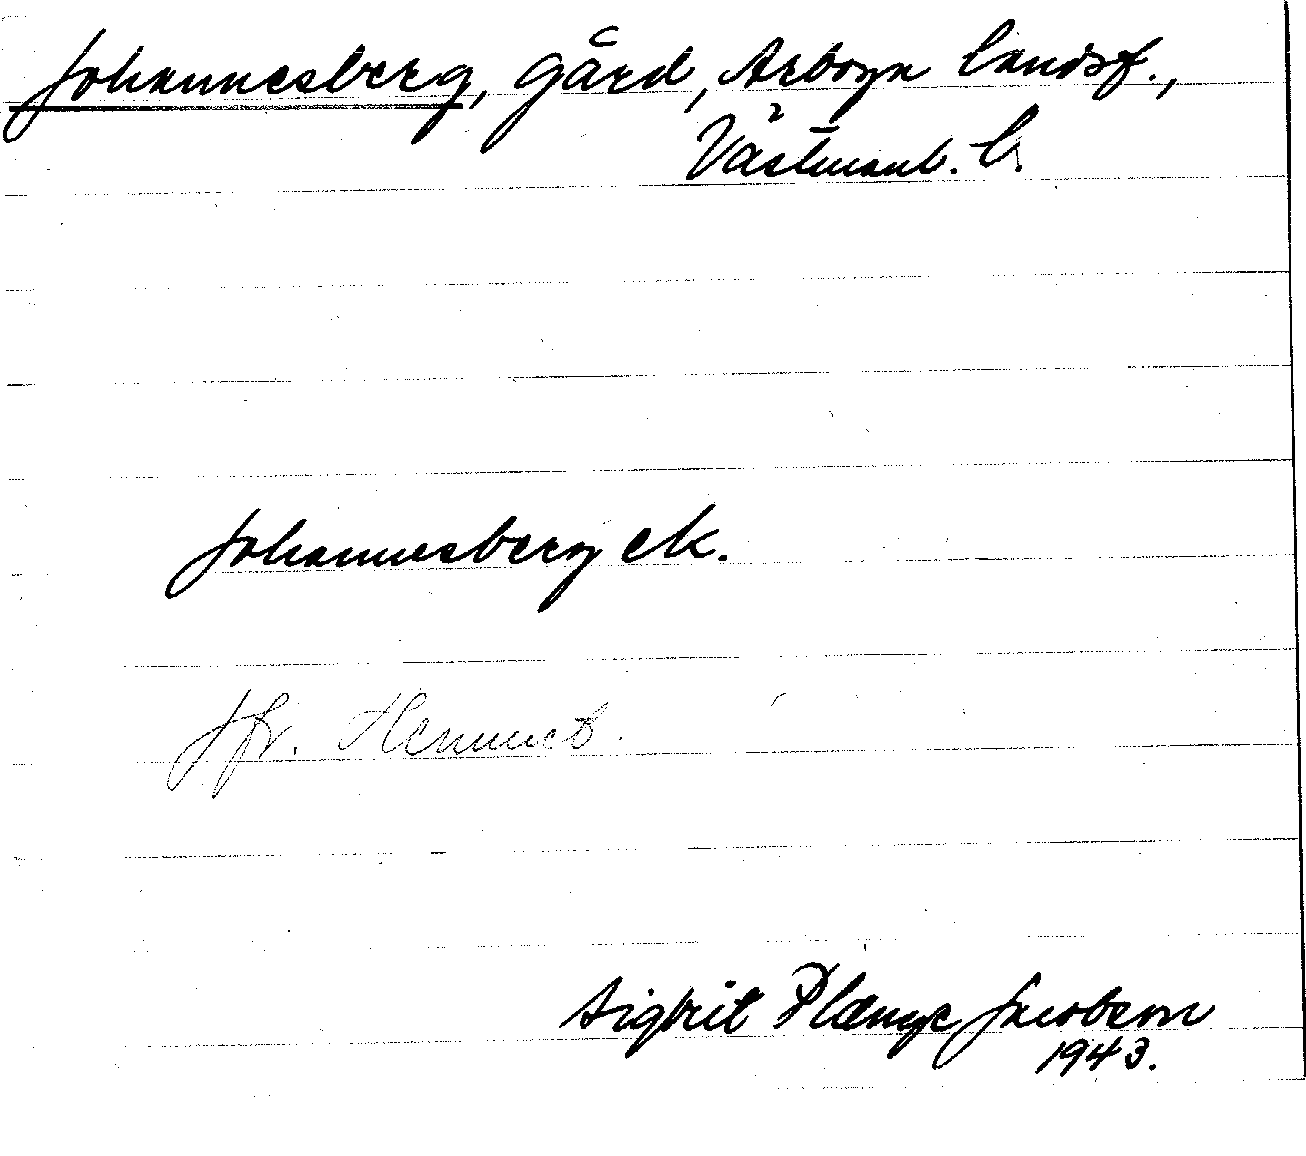 Johannesberg, gård, Arboga landsf.,
Västmanl. l.
Johannesberg ek.
Jfr. Hemmet.
Sigfrit Plænge Jacobson
1943.